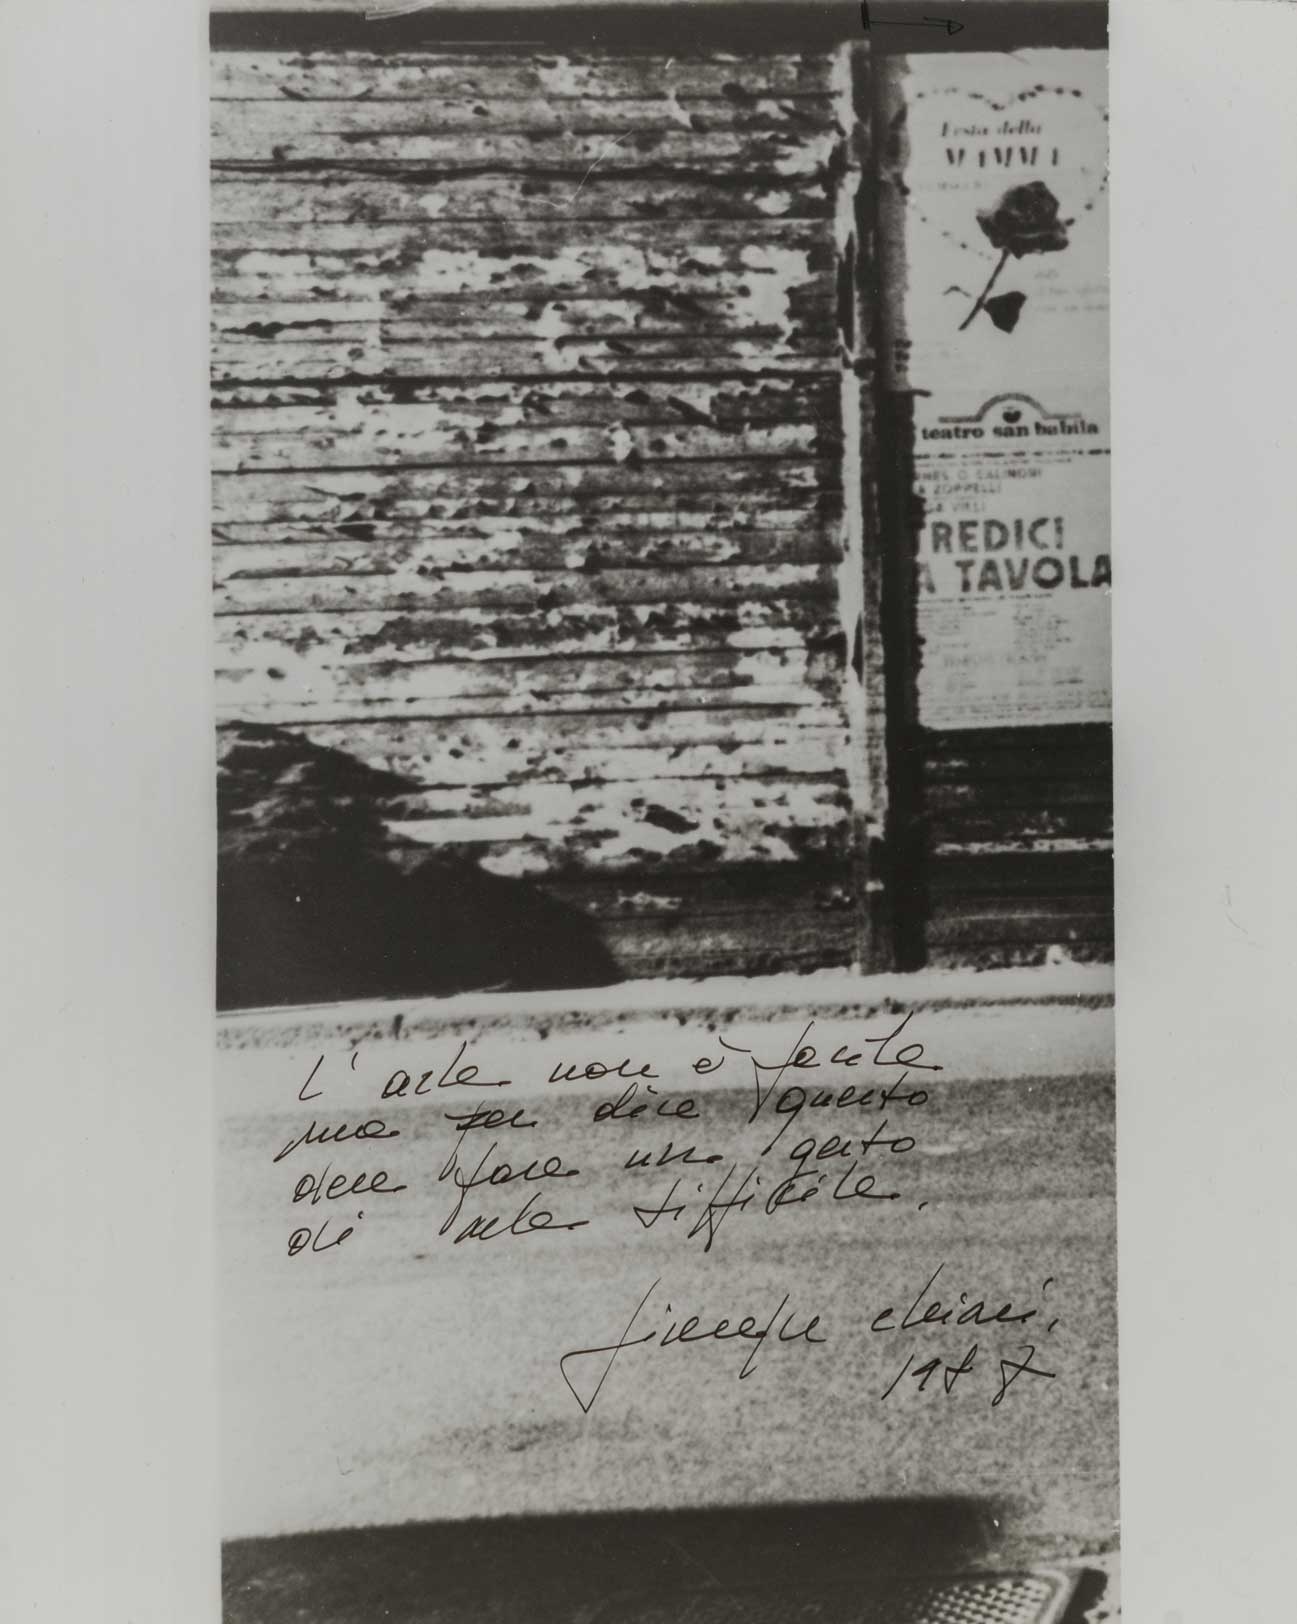 Festa della
MAMMA
teatro san babila
ZOPPELLI
TREDICI
A TAVOLA
L'arte non è facile
ma per dire questo
deve fare un gesto
di arte difficile.
Giuseppe Chiari,
1987